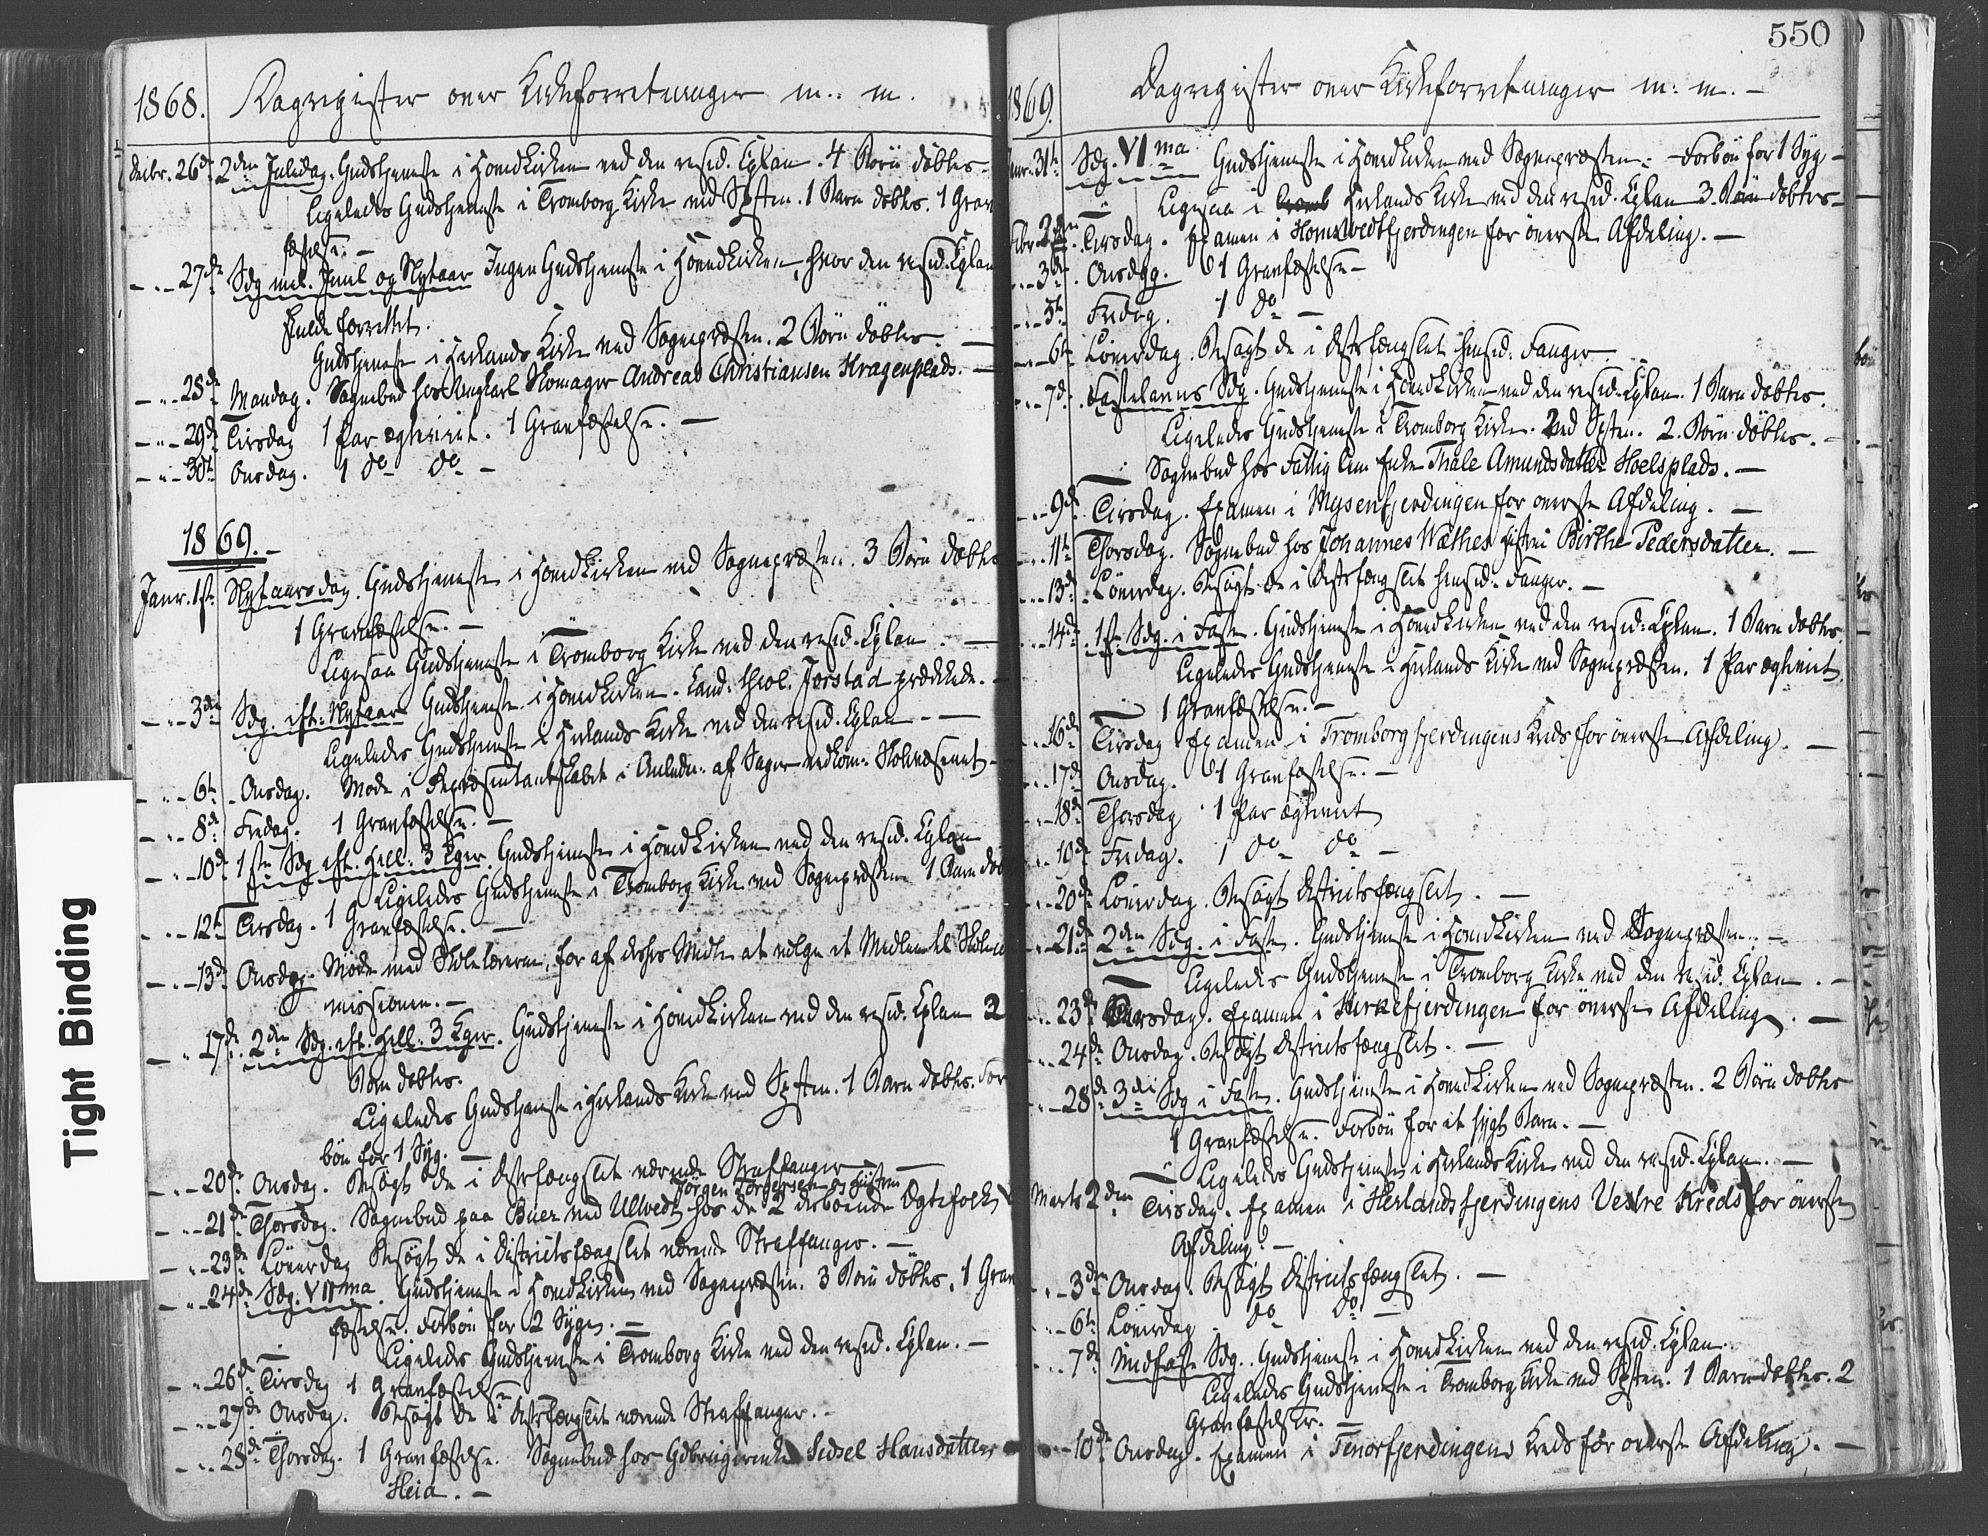 1868. Dagregister over Kirkeforretninger m. m.
Decbr. 26de 2den Juledag. Gudstjeneste i Hovedkirken ved den resid. Cplan. 4 Börn döbtes.
Ligeledes Gudstjeneste i Tromborg Kirke ved Spsten. 1 Barn döbtes. 1 Grav
fæstelse. —
— " — 27de Sdg mel. Juul og Nytaar Ingen Gudstjeneste i Hovedkirken, hvor den resid. Cplan
skulde forrettet.
Gudstjeneste i Herlands Kirke ved Sognepræsten. 2 Börn döbtes. —
— " — 28de Mandag. Sognebud hos Skomager Andreas Christiansen Kragenplads. —
— " — 29de Tirsdag 1 Par ægteviet. 1 Gravfæstelse. —
— " — 30te Onsdag. 1 do do —
1869. —
Janr. 1ste Nytaarsdag. Gudstjeneste i Hovedkirken ved Sognepræsten. 3 Börn döbtes
1 Gravfæstelse. —
Ligesaa Gudstjeneste i Tromborg Kirke ved den resid. Cplan. —
— " — 3die Sdg. eft. Nytaar Gudstjeneste i Hovedkirken. Cand. theol. Jerstad prædikede. —
Ligeledes Gudstjeneste i Herlands Kirke ved den resid. Cplan. —
— " — 6te Onsdag. Møde i Repræsentantskabet i Anledn. af Sager vedkom. Skolevæsenet —
— " — 8de Fredag. 1 Gravfæstelse. —
— " — 10de 1ste Sdg eft. Hell. 3 Kger. Gudstjeneste i Hovedkirken ved den resid. Cplan
Ligeledes Gudstjeneste i Tromborg Kirke ved Sognepræsten 1 Barn döbt
— " — 12te Tirsdag. 1 Gravfæstelse. —
— " — 13de Onsdag. Møde med Skolelærerne, for af deres Midte at vælge et Medlem til Skolecom
missionen. —
— " — 17de 2den Sdg. eft. Hell. 3 Kger. Gudstjeneste i Hovedkirken ved den resid. Cplan 3
Börn döbtes.
Ligeledes Gudstjeneste i Herlands Kirke ved Spsten. 1 Barn döbtes. For
bön for 1 Syg. —
— " — 20de Onsdag. Besögt de i Distrfængslet værende Straffanger —
Jörgen Torgersen og Hustru
— " — 21de Thorsdag. Sognebud paa Buer ved Ulvedt hos de 2 derboende Egtefolk
— " — 23de Löverdag Besögt de i Districtsfængslet værende Straffanger. —
— " — 24de Sdg. VIIma. Gudstjeneste i Hovedkirken ved Sognepræsten. 3 Börn döbtes, 1 Grav
fæstelse. Forbön for 2 Syge. —
Ligeledes Gudstjeneste i Tromborg Kirke ved den resid. Cplan. —
— " — 26de Tirsdag 1 Gravfæstelse.
— " — 27de Onsdag. Besögt de i Distrfængslet værende Straffanger. —
— " — 28de Thorsdag. 1 Gravfæstelse. Sognebud hos Gdbrugerenke Sidsel Hansdatter
Heia. —
550
1869. Dagregister over Kirkeforretninger m. m. —
Janr. 31te Sdg. VIma Gudstjeneste i Hovedkirken ved Sognepræsten. Forbön for 1 Syg —
Ligesaa i Herlands Kirke ved den resid. Cplan 3 Börn döbtes —
Febr. 2den Tirsdag. Examen i Homstvedtfjerdingen for överste Afdeling. —
— " — 3die Onsdag. 1 Gravfæstelse —
— " — 5te Fredag. 1 do —
— " — 6te Löverdag. Besögt de i Distrfængslet hensid. Fanger —
— " — 7de Fastelavns Sdg. Gudstjeneste i Hovedkirken ved den resid. Cplan. 1 Barn döbtes.
Ligeledes Gudstjeneste i Tromborg Kirke. Ved Spsten. 2. Börn döbtes. —
Sognebud hos Fattiglem Enke Thale Amundsdatter Hoelsplads. —
— " — 9de Tirsdag. Examen i Mysenfjerdingen for överste Afdeling. —
— " — 11te Thorsdag. Sognebud hos Johannes Wathes Hustru Birthe Pedersdatter. —
— " — 13de Löverdag. Besögt de i Distrfængslet hensid. Fanger. —
— " — 14de 1ste Sdg. i Faste. Gudstjeneste i Hovedkirken ved den resid. Cplan. 1 Barn döbtes
Ligeledes Gudstjeneste i Herlands Kirke ved Sognepræsten. 1 Par ægteviet.
1 Gravfæstelse. —
— " — 16de Tirsdag Examen i Tromborgfjerdingens Kreds for överste Afdeling. —
— " — 17de Onsdag. 1 Gravfæstelse. —
— " — 18de Thorsdag 1 Par ægteviet
— " — 19de Fredag. 1 do do —
— " — 20de Löverdag. Besögt Districtsfængslet. —
— " — 21de 2den Sdg. i Faste. Gudstjeneste i Hovedkirken ved Sognepræsten. —
Ligeledes Gudstjeneste i Tromborg Kirke ved den resid. Cplan. —
— " — 23de Tirsdag. Examen i Kirkefjerdingen for överste Afdeling. —
— " — 24de Onsdag. Besögt Districtsfængslet. —
— " — 28de 3die Sdg i Faste. Gudstjeneste i Hovedkirken ved Sognepræsten. 2 Börn döbtes
1 Gravfæstelse. Forbön for et sygt Barn. —
Ligeledes Gudstjeneste i Herlands Kirke ved den resid. Cplan. —
Marts 2den Tirsdag. Examen i Herlandsfjerdingens Vestre Kreds for överste
Afdeling. —
— " — 3die Onsdag. Besögt Districtsfængslet. —
— " — 6te Löverdag do do —
— " — 7de Midfaste Sdg. Gudstjeneste i Hovedkirken ved den resid. Cplan.
Ligeledes Gudstjeneste i Tromborg Kirke ved Spsten. 1 Barn döbtes. 2
Gravfæstelser. —
— " — 10de Onsdag. Examen i Tenorfjerdingens Kreds for överste Afdeling. —
Tight Binding